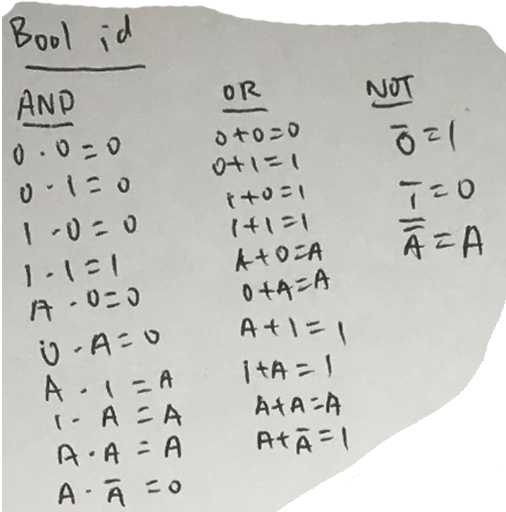 Bool id
AND
0 · 0 = 0
0 · 1 = 0
1 · 0 = 0
1 · 1 = 1
A · 0 = 0
0 · A = 0
A · 1 = A
1 · A = A
A · A = A
A · Ā = 0
OR
0 + 0 = 0
0 + 1 = 1
1 + 0 = 1
1 + 1 = 1
A + 0 = A
0 + A = A
A + 1 = 1
1 + A = 1
A + A = A
A + Ā = 1
NOT
0̅ = 1
1̅ = 0
A̿ = A